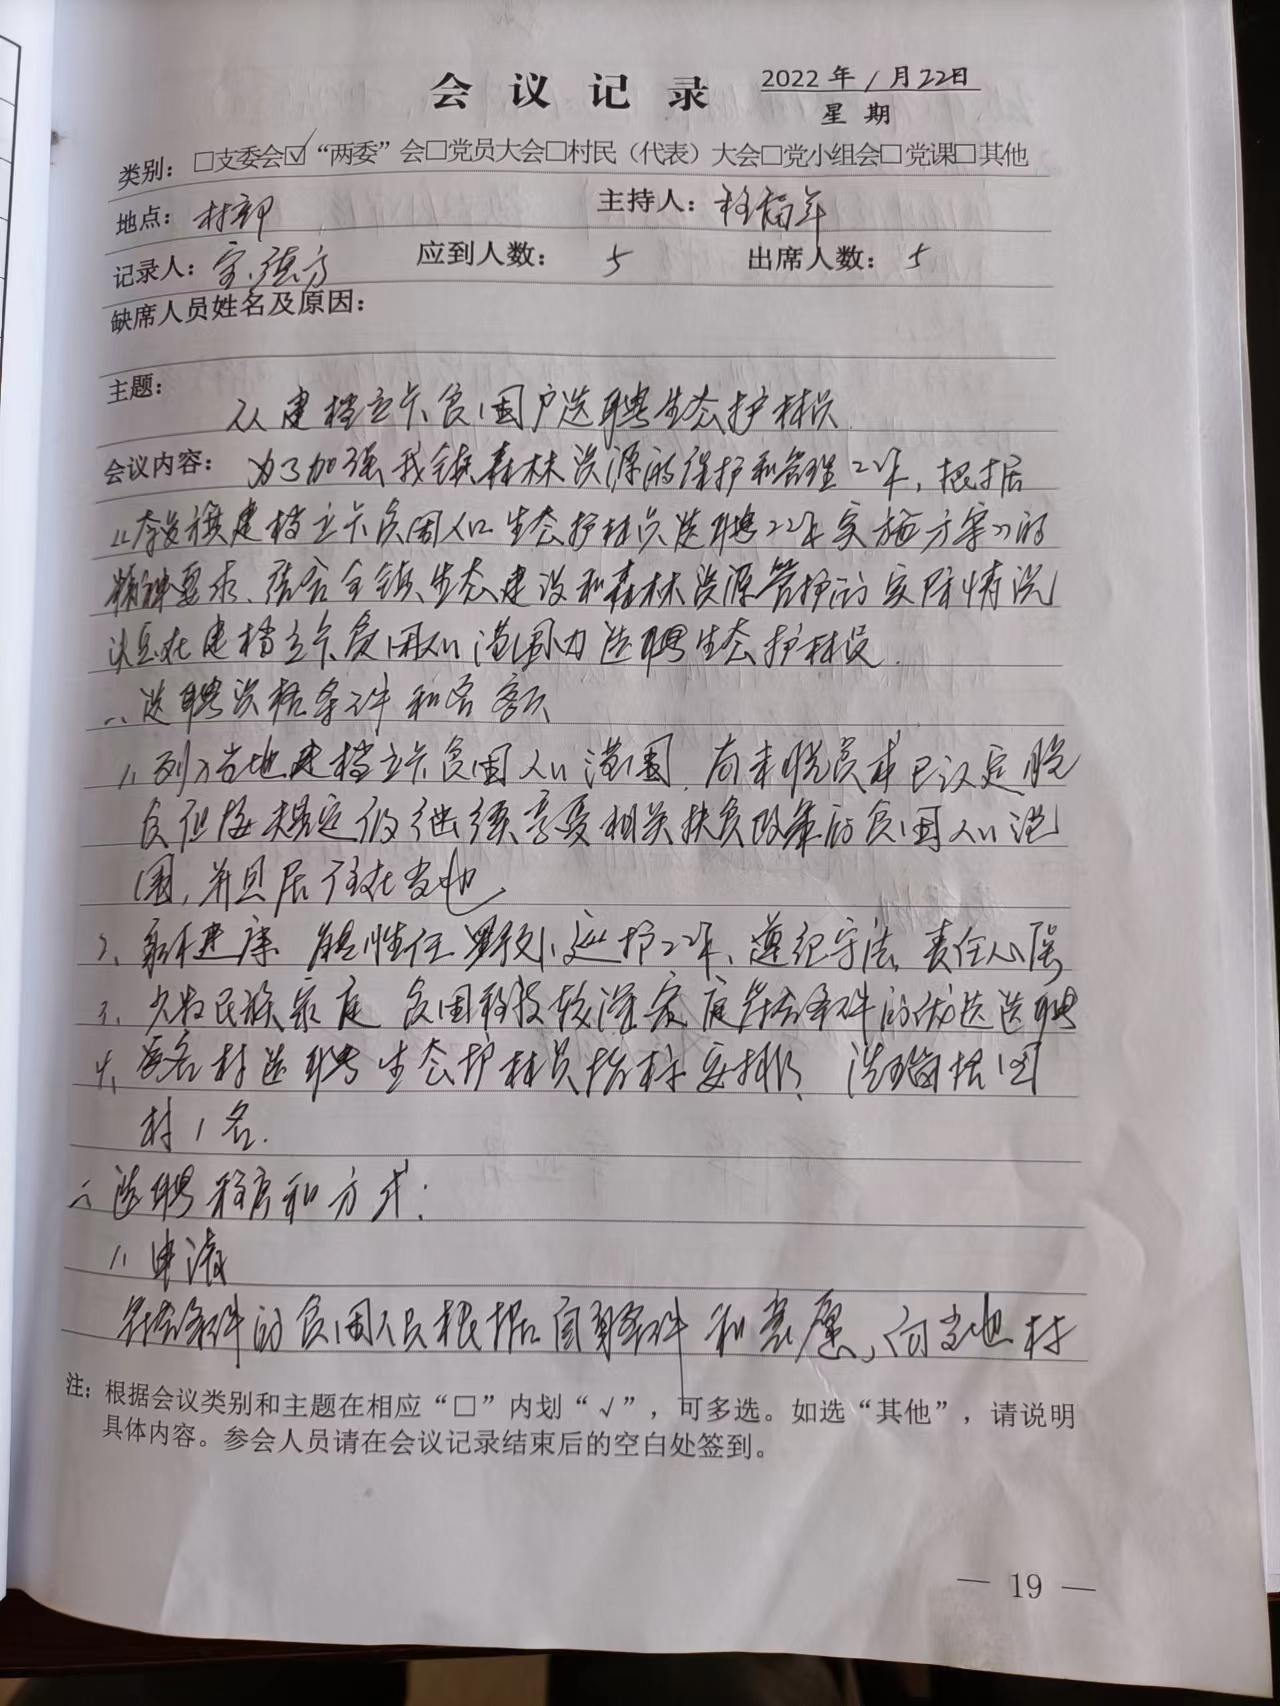 会议记录 2022年1月22日
星期
类别：□支委会☑“两委”会□党员大会□村民（代表）大会□党小组会□党课□其他
地点：村部 主持人：程福年
记录人：宝德方 应到人数：5 出席人数：5
缺席人员姓名及原因：
主题：
从建档立卡贫困户选聘生态护林员
会议内容：为了加强我镇森林资源的保护和管理工作，根据
《奈曼旗建档立卡贫困人口生态护林员选聘工作实施方案》的
精神要求、结合全镇生态建设和森林资源管护的实际情况
决定在建档立卡贫困人口范围内选聘生态护林员.
一、选聘资格条件和名额
1、列入当地建档立卡贫困人口范围，尚未脱贫或已认定脱
贫但按规定仍继续享受相关扶贫政策的贫困人口范
围，并且居住在当地
2、身体健康、能胜任野外巡护工作、遵纪守法，责任心强
3、少数民族家庭、贫困程度较深家庭符合条件的优选选聘
4、各村选聘生态护林员指标安排、
村1名.
二、选聘程序和方式：
1、申请
符合条件的贫困人员根据自身条件和意愿，向当地村
注：根据会议类别和主题在相应“□”内划“√”，可多选。如选“其他”，请说明
具体内容。参会人员请在会议记录结束后的空白处签到。
— 19 —